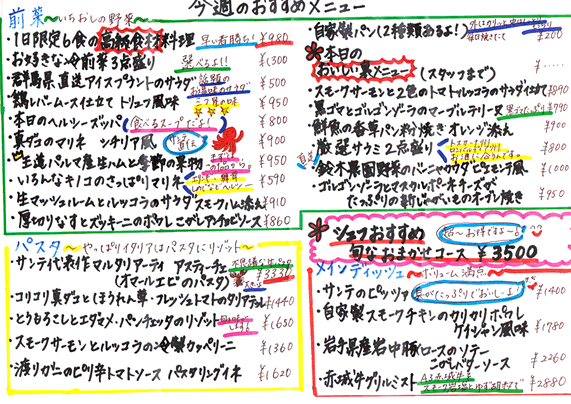 今週のおすすめメニュー
前菜 ~いちおしの野菜~
・1日限定6食の高級食材料理 早い者勝ち! ¥980
・お好きな冷前菜3点盛り 選べるよ!! ¥1300
・群馬県直送アイスプラントのサラダ 話題のお塩味のサラダ ¥500
・鶏レバームース仕立て トリュフ風味 ¥950
・本日のヘルシースープ 食べるスープだよ! ¥800
・真ダコのマリネ シチリア風 ¥900
・王道パルマ産生ハムと季節の果物 ¥950
・いろんなキノコのさっぱりマリネ ¥590
・生マッシュルームとルッコラのサラダ スモークハム添え ¥910
・厚切りなすとズッキーニのポワレ こがしアンチョビソース ¥860
・自家製パン(2種類あるよ!) ¥200
・本日の
おいしい裏メニュー (スタッフまで) ¥……
・スモークサーモンと2色のトマトルッコラのサラダ仕立て ¥890
・黒ゴマとゴルゴンゾーラのマーブルテリーヌ ¥790
・鮮魚の香草パン粉焼き オレンジ添え ¥900
・厳選サラミ2点盛り ¥800
・鈴木農園野菜のバーニャカウダ ピエモンテ風 ¥1000
・ゴルゴンゾーラとマスカルポーネチーズが
たっぷりの新じゃがいものオーブン焼き ¥950
シェフおすすめ 超~お得ですよ~
旬なおまかせコース ¥3500
パスタ ~やっぱりイタリアはパスタにリゾット~
・サンテ代表作 マルタリアーティ アスティーチェ
(オマールエビのパスタ) ¥3330
・コリコリ真ダコとほうれん草・フレッシュトマトのタリアテッレ ¥1440
・とうもろこしとエダマメ・パンチェッタのリゾット ¥1650
・スモークサーモンとルッコラの冷製カッペリーニ ¥1360
・渡りガニのピリ辛トマトソース パスタ リングイネ ¥1620
メインディッシュ ~ボリューム満点~
・サンテのピッツァ 具がたっぷりでおいしーよ! ¥1400
・自家製スモークチキンのカリカリポワレ
ケイジャン風味 ¥1780
・岩手県産岩中豚ロースのソテー
こがしバターソース ¥2260
・赤城牛グリルミスト ¥2880